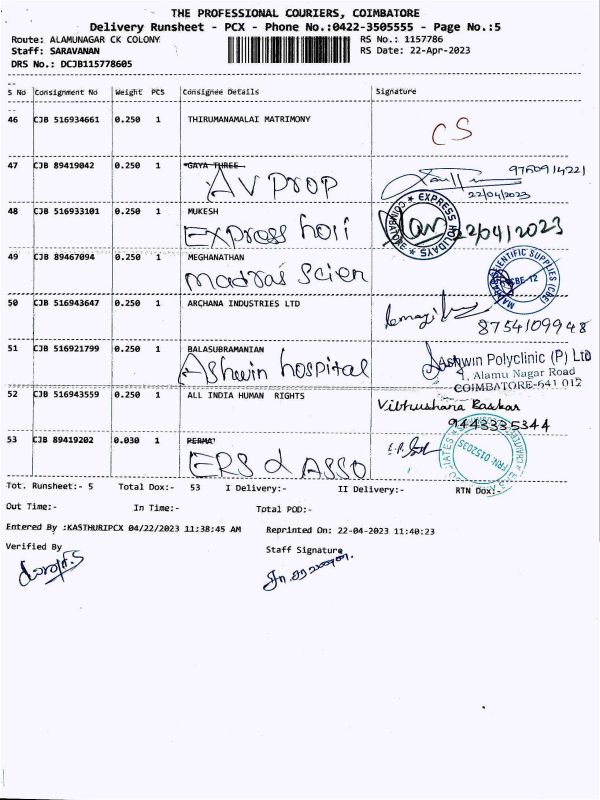 THE PROFESSIONAL COURIERS, COIMBATORE
Delivery Runsheet - PCX - Phone No.:0422-3505555 - Page No.:5
Route: ALAMUNAGAR CK COLONY RS No.: 1157786
Staff: SARAVANAN RS Date: 22-Apr-2023
DRS No.: DCJB115778605
S No Consignment No Weight PCS Consignee Details Signature
46 CJB 516934661 0.250 1 THIRUMANAMALAI MATRIMONY
CS
47 CJB 89419042 0.250 1 GAYA THREE
AV Prop
22/04/2023
48 CJB 516933101 0.250 1 MUKESH
Express holi
EXPRESS HOLIDAYS COIMBATORE
22/04/2023
49 CJB 89467094 0.250 1 MEGHANATHAN
madras scien
SCIENTIFIC SUPPLIES (CBE)
CBE-12
50 CJB 516943647 0.250 1 ARCHANA INDUSTRIES LTD
8754109948
51 CJB 516921799 0.250 1 BALASUBRAMANIAN
Ashwin hospital
Ashwin Polyclinic (P) Ltd
1, Alamu Nagar Road
COIMBATORE-641 012
52 CJB 516943559 0.250 1 ALL INDIA HUMAN RIGHTS
Vibhushana Baskar
9443335344
53 CJB 89419202 0.030 1 PERMA
ERS & ASSO
FRN: 015203S
Tot. Runsheet:- 5 Total Dox:- 53 I Delivery:- II Delivery:- RTN Dox:-
Out Time:- In Time:- Total POD:-
Entered By :KASTHURIPCX 04/22/2023 11:38:45 AM Reprinted On: 22-04-2023 11:40:23
Verified By Staff Signature